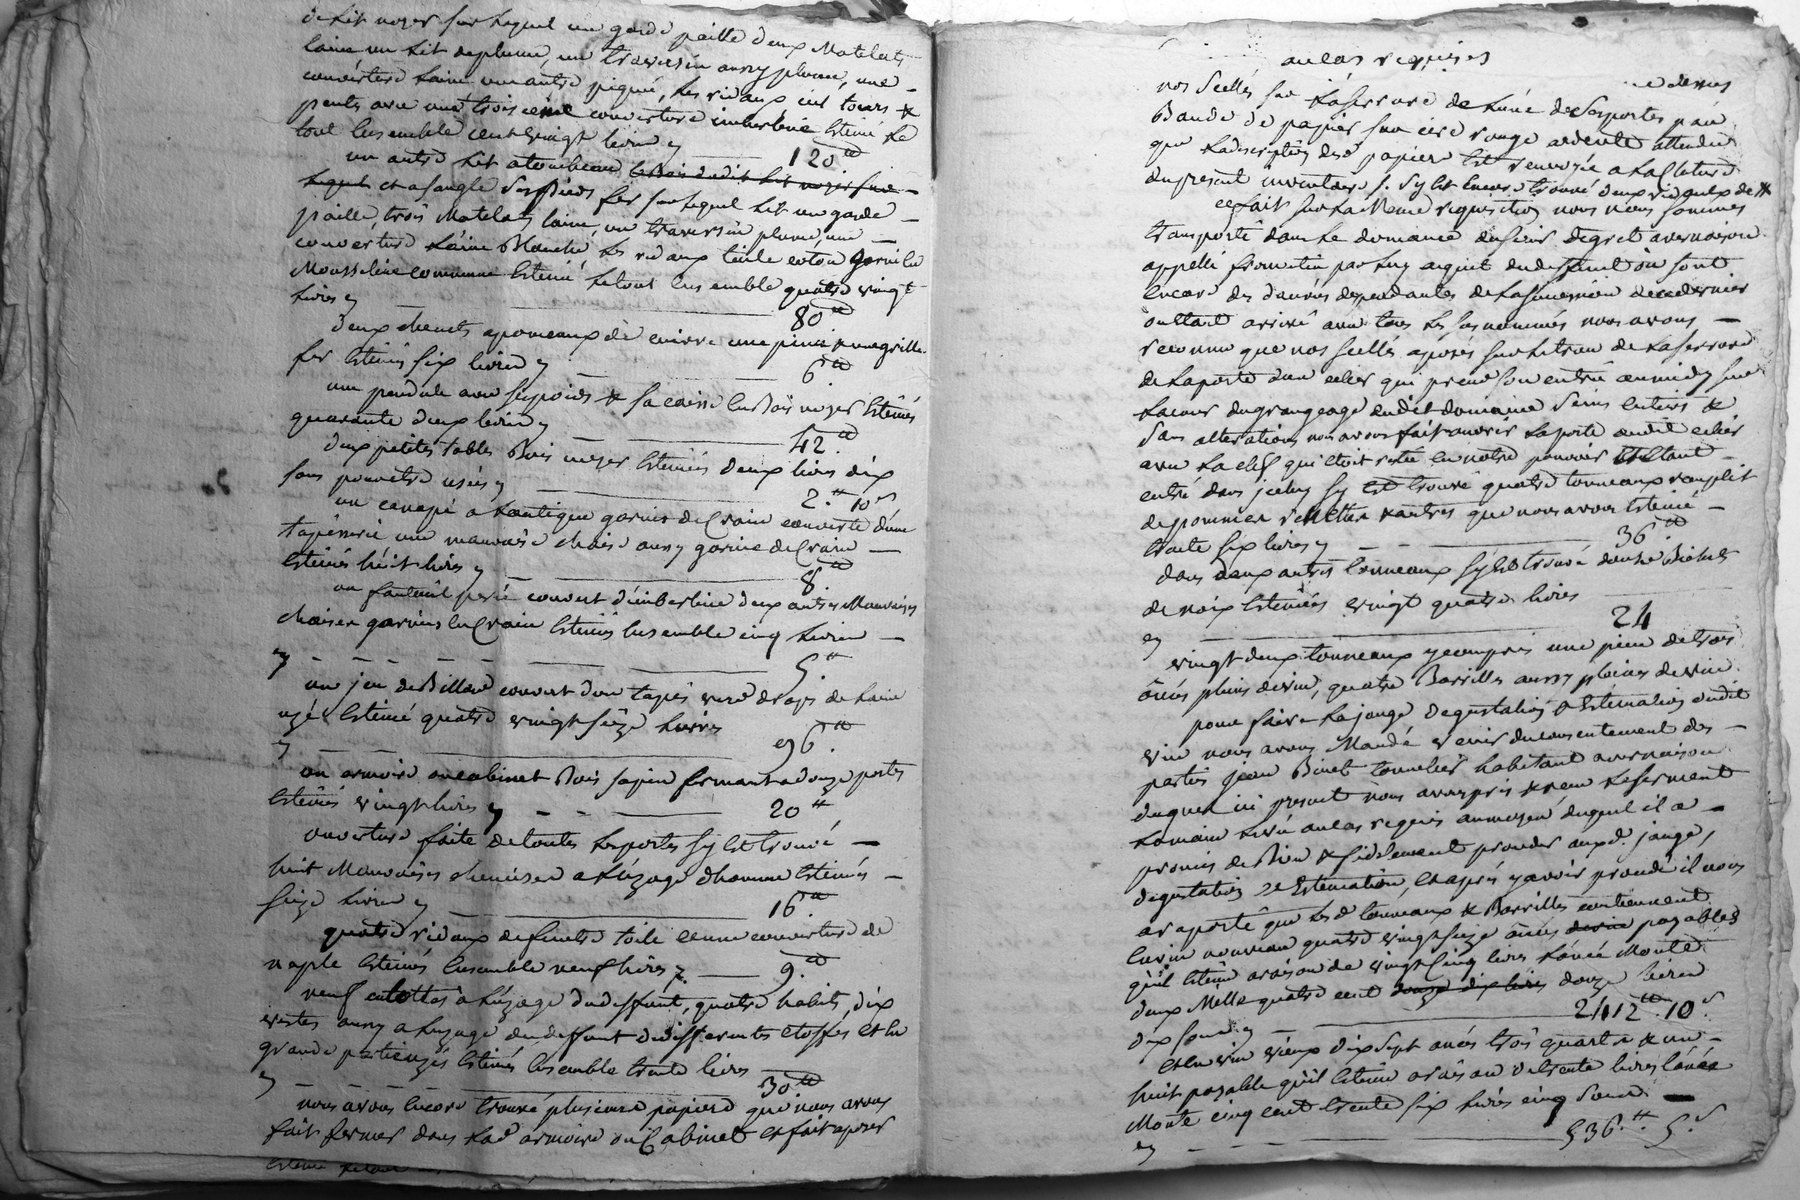 de lit noyer sur lequel un garde paille deux Matelats
laine un lit de plume, un traversin aussy plume, une
couverture laine une autre piquée, les rideaux ciel tours &
pentes avec une troisième couverture imberline Estimé le
tout Ensemble cent vingt livres 120.tt
un autre lit atombeau le Bois dudit lit noyer sur
lequel et a sangle ses pieds fer sur lequel lit un garde
paille, trois Matelats laine, un traversin plume, une
couverture laine Blanche les rideaux toile coton garnie en
Mousseline commune Estimé le tout Ensemble quatre vingt
livres 80.tt
deux chenets a pomeaux de cuivre une pince & une grille
fer Estimés six livres 6.tt
une pendule avec ses poids & sa caisse En Bois noyer Estimés
quarante deux livres 42.tt
deux petites tables Bois noyer Estimées deux livres dix
sous 2.tt 10s
un canapé a Lantique garnis de Crain couverte d'une
tapisserie une mauvaise chaise aussy garnie de Crain
Estimés huit livres 8.tt
un fauteuil percé couvert d'imberline deux autres Mauvaises
chaises garnies En Crain Estimés Ensemble cinq livres
5.tt
un jeu de Billard couvert d'un tapis verd drap de laine
uzé Estimé quatre vingt seize livres
96.tt
un armoire ou cabinet Bois sapin fermant a douze portes
Estimé vingt livres 20.tt
ouverture faite de toutes les portes sy Est trouvé
huit Mauvaises chemises a L'uzage dhomme Estimés
seize livres 16.tt
quatre rideaux de fenetre toile et une couverture de
naple Estimés Ensemble neuf livres 9.tt
neuf culottes a L'uzage du deffunt, quatre habits, dix
vestes aussy a Luzage du deffunt de differentes etoffes et En
grande partie uzés Estimés Ensemble trente livres
30.tt
nous avons Encore trouvé plusieurs papiers que nous avons
fait fermer dans lad. armoire ou Cabinet et fait aposer
au cas requises
nos scellés sur La serrure de Lune desd. portes par
Bande de papier sur cire rouge ardente attendu
que La description desd. papiers Est renvoyée a La cloture
du present inventaire
ce fait sur La Meme requisition nous nous sommes
transporté dans Le domaine du sieur degret
appellé fromentin par Luy acquit du deffunt ou sont
Encore des danrées dependantes de La succession de ce dernier
ou Etant arrivé avec tous Les susnommés nous avons
reconnu que nos scellés aposés sur Le trou de La serrure
de La porte d'un celier qui prend son entrée au midy sur
La cour du grangeage dudit domaine Sains Entiers &
Sans alteration, nous avons fait ouvrir La porte dudit celier
avec La clef qui Etoit restée En notre pouvoir Et Etant
entré dans iceluy sy Est trouvé quatre tonneaux remplit
de pommes reinettes & autres que nous avons Estimé
trente six livres 36.tt
dans deux autres tonneaux sy Est trouvé douze Bichets
de noix Estimées vingt quatre livres
24
vingt deux tonneaux y compris une piece de trois
anées pleins de vin, quatre Barrilles aussy pleines de vin
pour faire La jauge degustation & Estimation dudit
vin nous avons Mandé venir du consentement des
parties jean Binet tonnelier habitant
duquel icy present nous avons pris & reçu Le serment
La main Levée au cas requis au moyen duquel il a
promis de Bien & fidelement proceder auxd. jauge,
degustation & Estimation, Et après y avoir procédé il nous
a raporté que Lesd. tonneaux & Barrilles contiennent
En vin nouveau quatre vingt seize anées de vin payables
qu'il Estime a raison de vingt cinq livres L'anée Monte
deux Mille quatre cent douze dix livres douze livres
dix sous 2412.tt 10.s
Et En vin vieux dix sept anées trois quarts & un
huit payable qu'il Estime a raison de trente livres L'anée
Monte cinq cent trente six livres cinq sous
536.tt 5.s